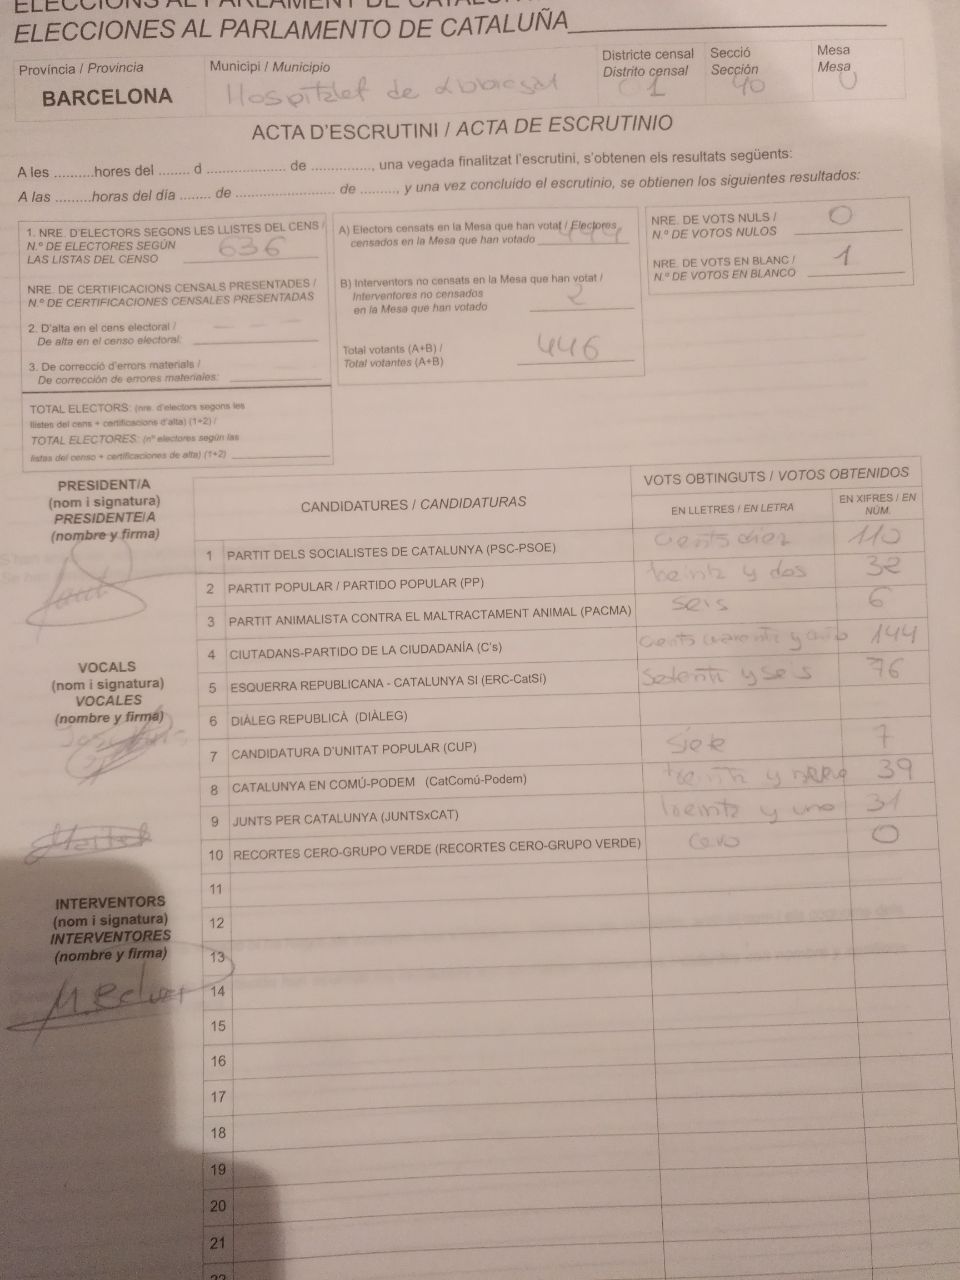 ELECCIONS AL PARLAMENT DE CATALUN
ELECCIONES AL PARLAMENTO DE CATALUÑA
Província / Provincia
BARCELONA
Municipi / Municipio
Hospitalet de
Districte censal
Distrito censal
01
Secció
Sección
40
Mesa
Mesa
U
ACTA D'ESCRUTINI / ACTA DE ESCRUTINIO
A les ..........hores del ........ d .................... de ..............., una vegada finalitzat l'escrutini, s'obtenen els resultats següents:
A las .........horas del día ........ de ......................... de ........., y una vez concluido el escrutinio, se obtienen los siguientes resultados:
1. NRE. D'ELECTORS SEGONS LES LLISTES DEL CENS /
N.º DE ELECTORES SEGÚN
LAS LISTAS DEL CENSO 636
NRE. DE CERTIFICACIONS CENSALS PRESENTADES /
N.º DE CERTIFICACIONES CENSALES PRESENTADAS
2. D'alta en el cens electoral /
De alta en el censo electoral:
3. De correcció d'errors materials /
De corrección de errores materiales:
TOTAL ELECTORS: (nre. d'electors segons les
llistes del cens + certificacions d'alta) (1+2) /
TOTAL ELECTORES: (nº electores según las
listas del censo + certificaciones de alta) (1+2)
A) Electors censats en la Mesa que han votat / Electores
censados en la Mesa que han votado 444
B) Interventors no censats en la Mesa que han votat /
Interventores no censados
en la Mesa que han votado 2
Total votants (A+B) /
Total votantes (A+B) 446
NRE. DE VOTS NULS /
N.º DE VOTOS NULOS 0
NRE. DE VOTS EN BLANC /
N.º DE VOTOS EN BLANCO 1
PRESIDENT/A
(nom i signatura)
PRESIDENTE/A
(nombre y firma)
VOCALS
(nom i signatura)
VOCALES
(nombre y firma)
INTERVENTORS
(nom i signatura)
INTERVENTORES
(nombre y firma)
CANDIDATURES / CANDIDATURAS
VOTS OBTINGUTS / VOTOS OBTENIDOS
EN LLETRES / EN LETRA
EN XIFRES / EN
NÚM.
1 PARTIT DELS SOCIALISTES DE CATALUNYA (PSC-PSOE) 110
2 PARTIT POPULAR / PARTIDO POPULAR (PP) treinta y dos 32
3 PARTIT ANIMALISTA CONTRA EL MALTRACTAMENT ANIMAL (PACMA) seis 6
4 CIUTADANS-PARTIDO DE LA CIUDADANÍA (C's) 144
5 ESQUERRA REPUBLICANA - CATALUNYA SI (ERC-CatSí) setenta y seis 76
6 DIÀLEG REPUBLICÀ (DIÀLEG)
7 CANDIDATURA D'UNITAT POPULAR (CUP) siete 7
8 CATALUNYA EN COMÚ-PODEM (CatComú-Podem) treinta y 39
9 JUNTS PER CATALUNYA (JUNTSxCAT) treinta y uno 31
10 RECORTES CERO-GRUPO VERDE (RECORTES CERO-GRUPO VERDE) cero 0
11
12
13
14
15
16
17
18
19
20
21
22